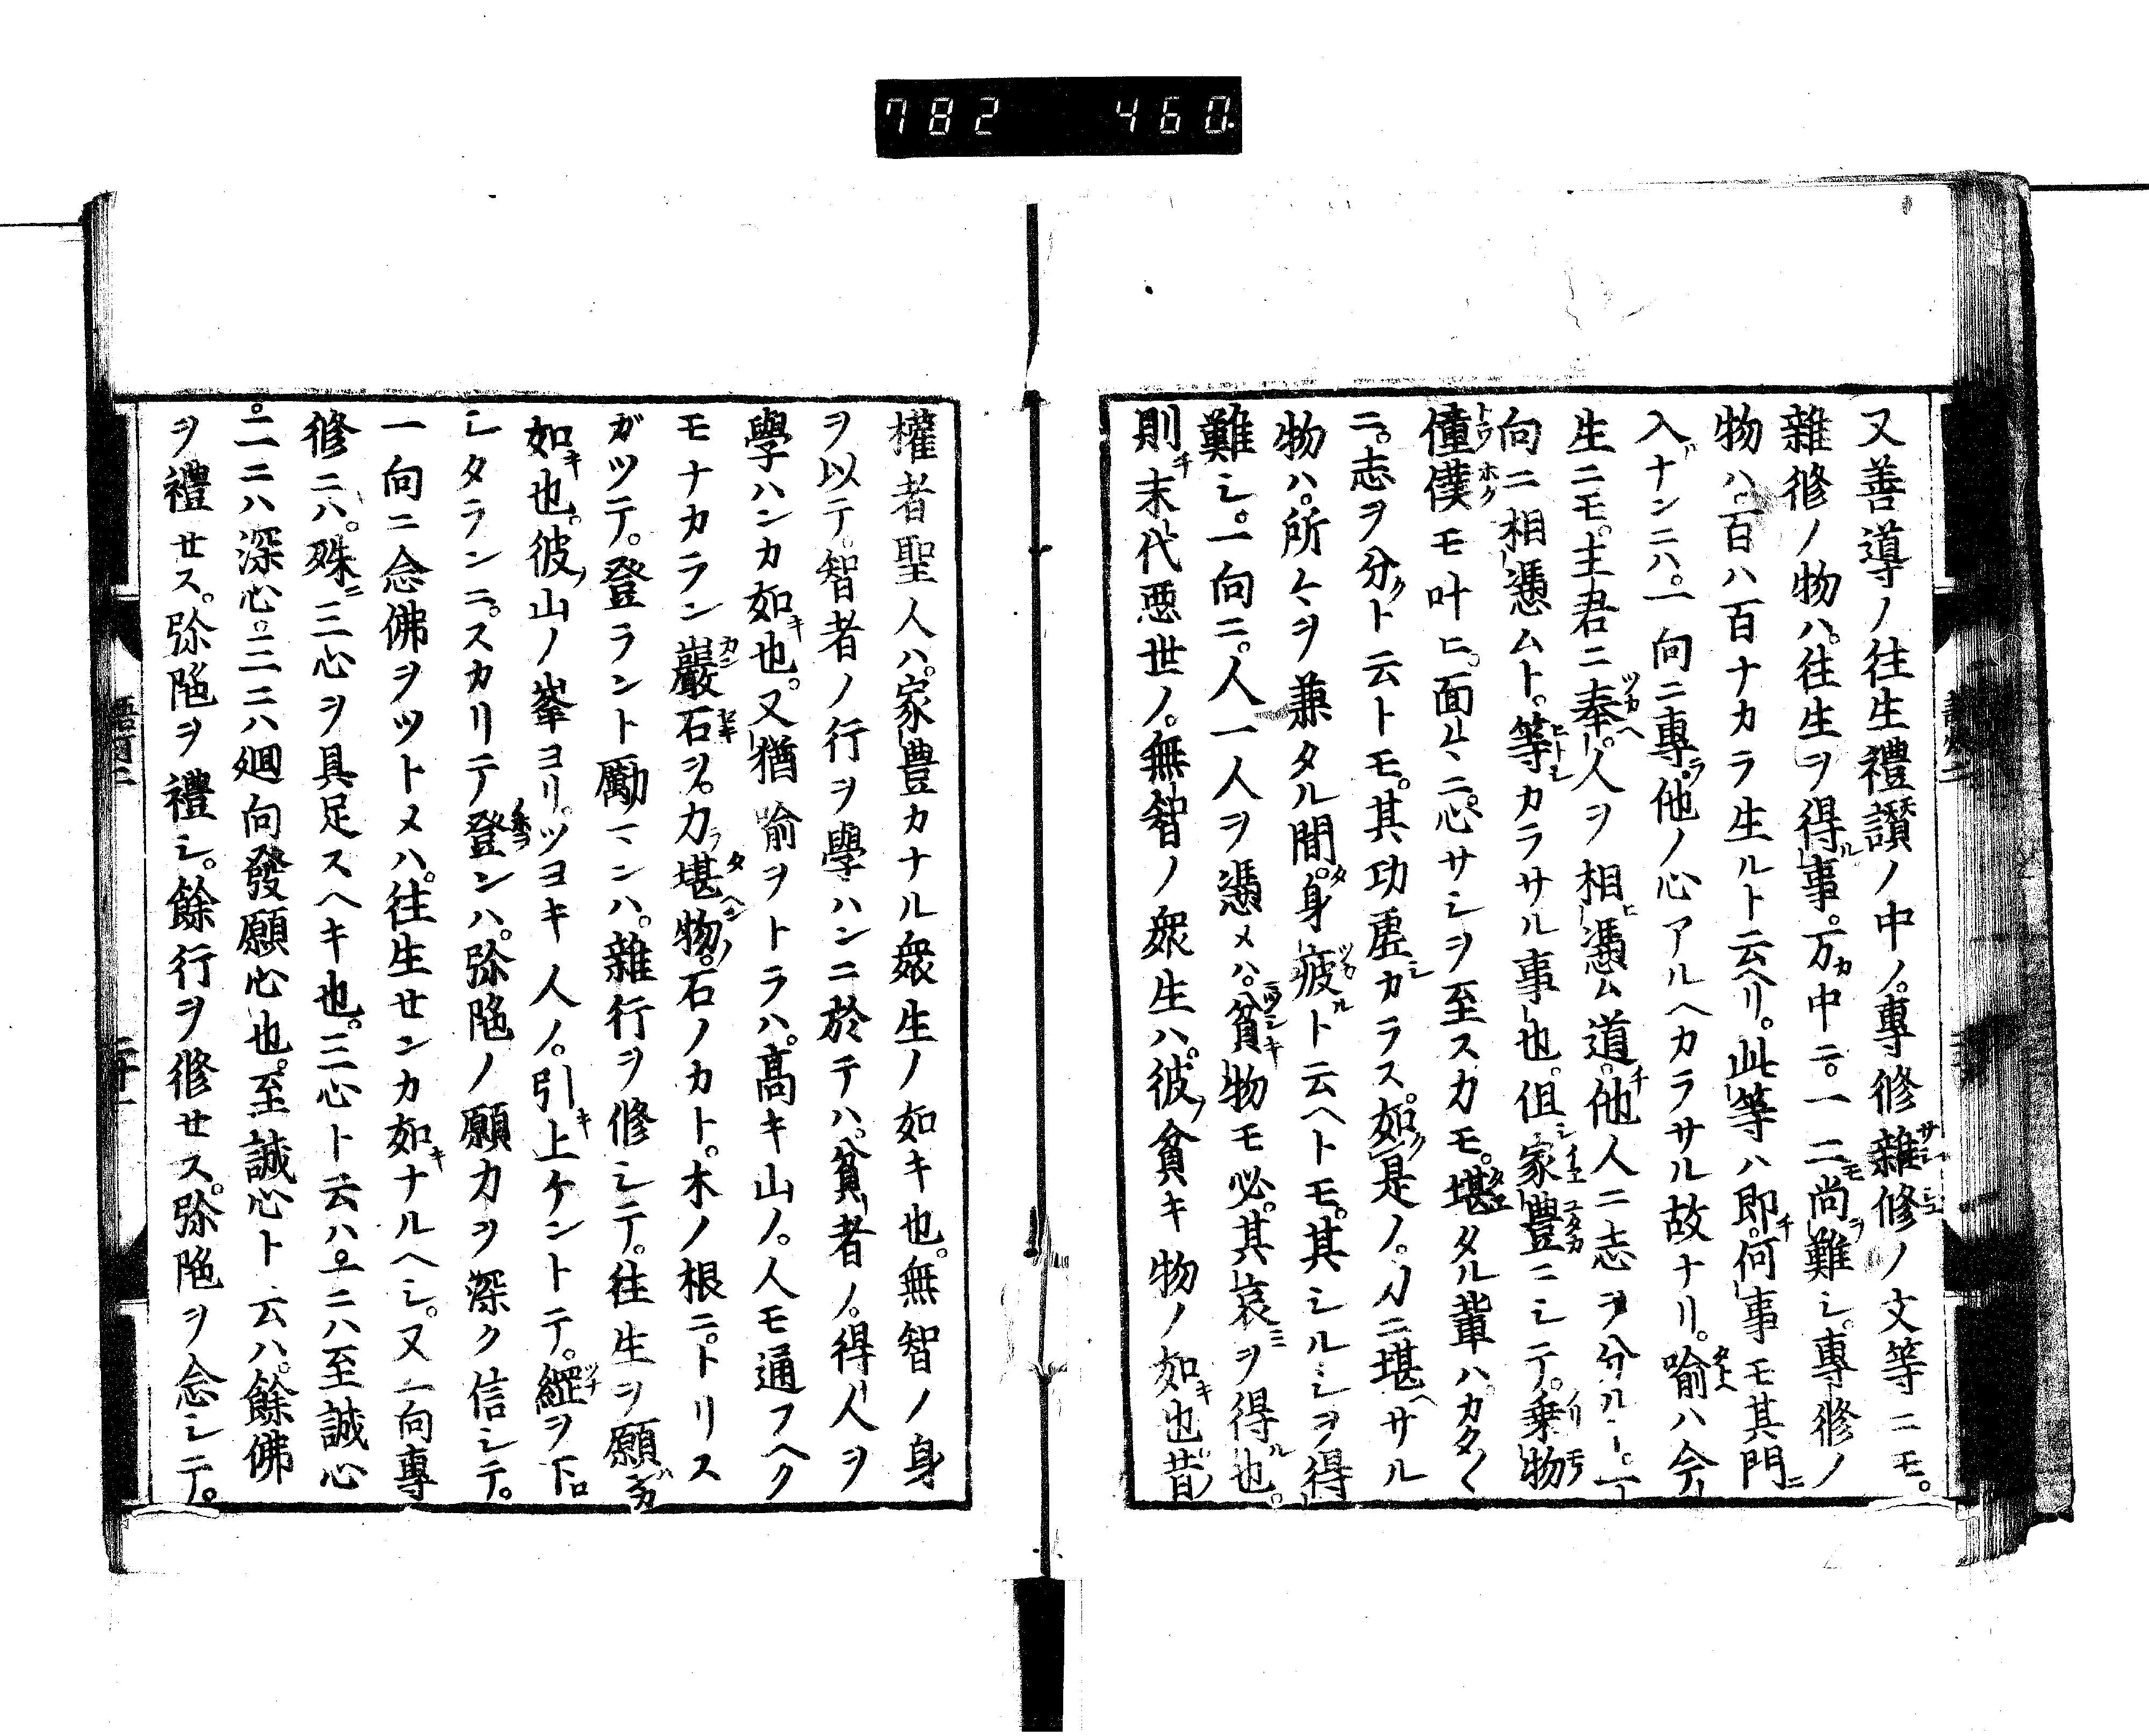 782 460
又善導ノ往生禮讃ノ中ノ。專修雜修ノ文等ニモ。
雜修ノ物ハ。往生ヲ得ル事。万カ中ニ。一二モ尚難シ。專修ノ
物ハ。百ハ百ナカラ生ルト云ヘリ。此等ハ即チ。何事モ其門ニ
入ナンニハ。一向ニ專ラ。他ノ心アルヘカラサル故ナリ。喻ハ今
生ニモ。主君ニ奉ヘ。人ヲ相憑ム道。他人ニ志ヲ分ルト。一
向ニ相憑ムト。等カラサル事也。但シ家豊ニシテ。乗物
僮僕モ叶ヒ。面々ニ。心サシヲ至スカモ。堪タル輩ハ。カタ〱
ニ。志ヲ分クト云トモ。其功虚シカラス。如ク是ノ。力ニ堪ヘサル
物ハ。所々ヲ兼タル間タ。身疲ルト云ヘトモ。其シルシヲ得
難シ。一向ニ。人一人ヲ憑メハ。貧キ物モ必。其哀ミヲ得ル也。
則チ末代悪世ノ。無智ノ衆生ハ。彼ノ貧キ物ノ如キ也昔ノ
權者聖人ハ。家豊カナル衆生ノ如キ也。無智ノ身
ヲ以テ。智者ノ行ヲ學ハンニ於テハ。貧者ノ。得人ヲ
學ハンカ如キ也。又猶喻ヲトラハ。高キ山ノ。人モ通フヘク
モナカラン巖石ヲ。力ラ堪ヘン物ノ。石ノカト。木ノ根ニ。トリス
ガツテ。登ラント勵マンハ。雜行ヲ修シテ。往生ヲ願ガフガ
如キ也。彼ノ山ノ峯ヨリ。ツヨキ人ノ。引キ上ケントテ。縄ヲ下ロ
シタランニ。スカリテ登ンハ。弥陁ノ願力ヲ深ク信シテ。
一向ニ念佛ヲツトメハ。往生センカ如キナルヘシ。又一向專
修ニハ。殊ニ三心ヲ具足スヘキ也。三心ト云ハ。一ニハ至誠心
。二ニハ深心。三ニハ廻向發願心也。至誠心ト云ハ。餘佛
ヲ禮セス。弥陁ヲ禮シ。餘行ヲ修セス。弥陁ヲ念シテ。